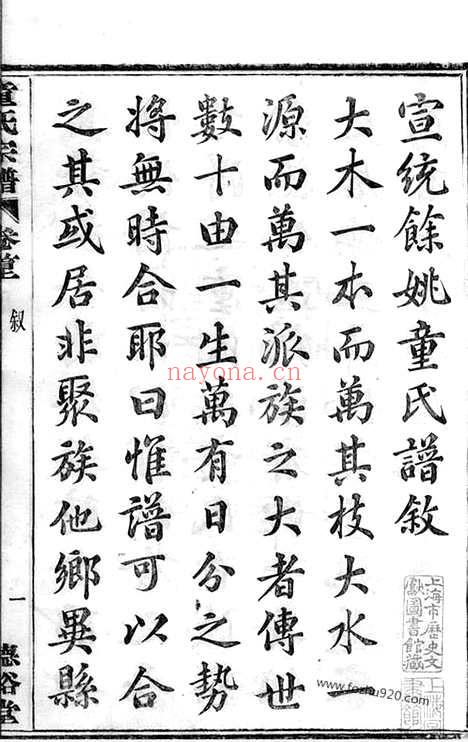 宣統餘姚童氏譜敘
大木一本而萬其枝大水一
源而萬其派族之大者傳世
數十由一生萬有日分之勢
將無時合耶曰惟譜可以合
之其或居非聚族他鄉異縣
童氏宗譜 卷首 敘 一 德裕堂
上海市歷史文
獻圖書館藏
nayona.cn
www.fozhu920.com